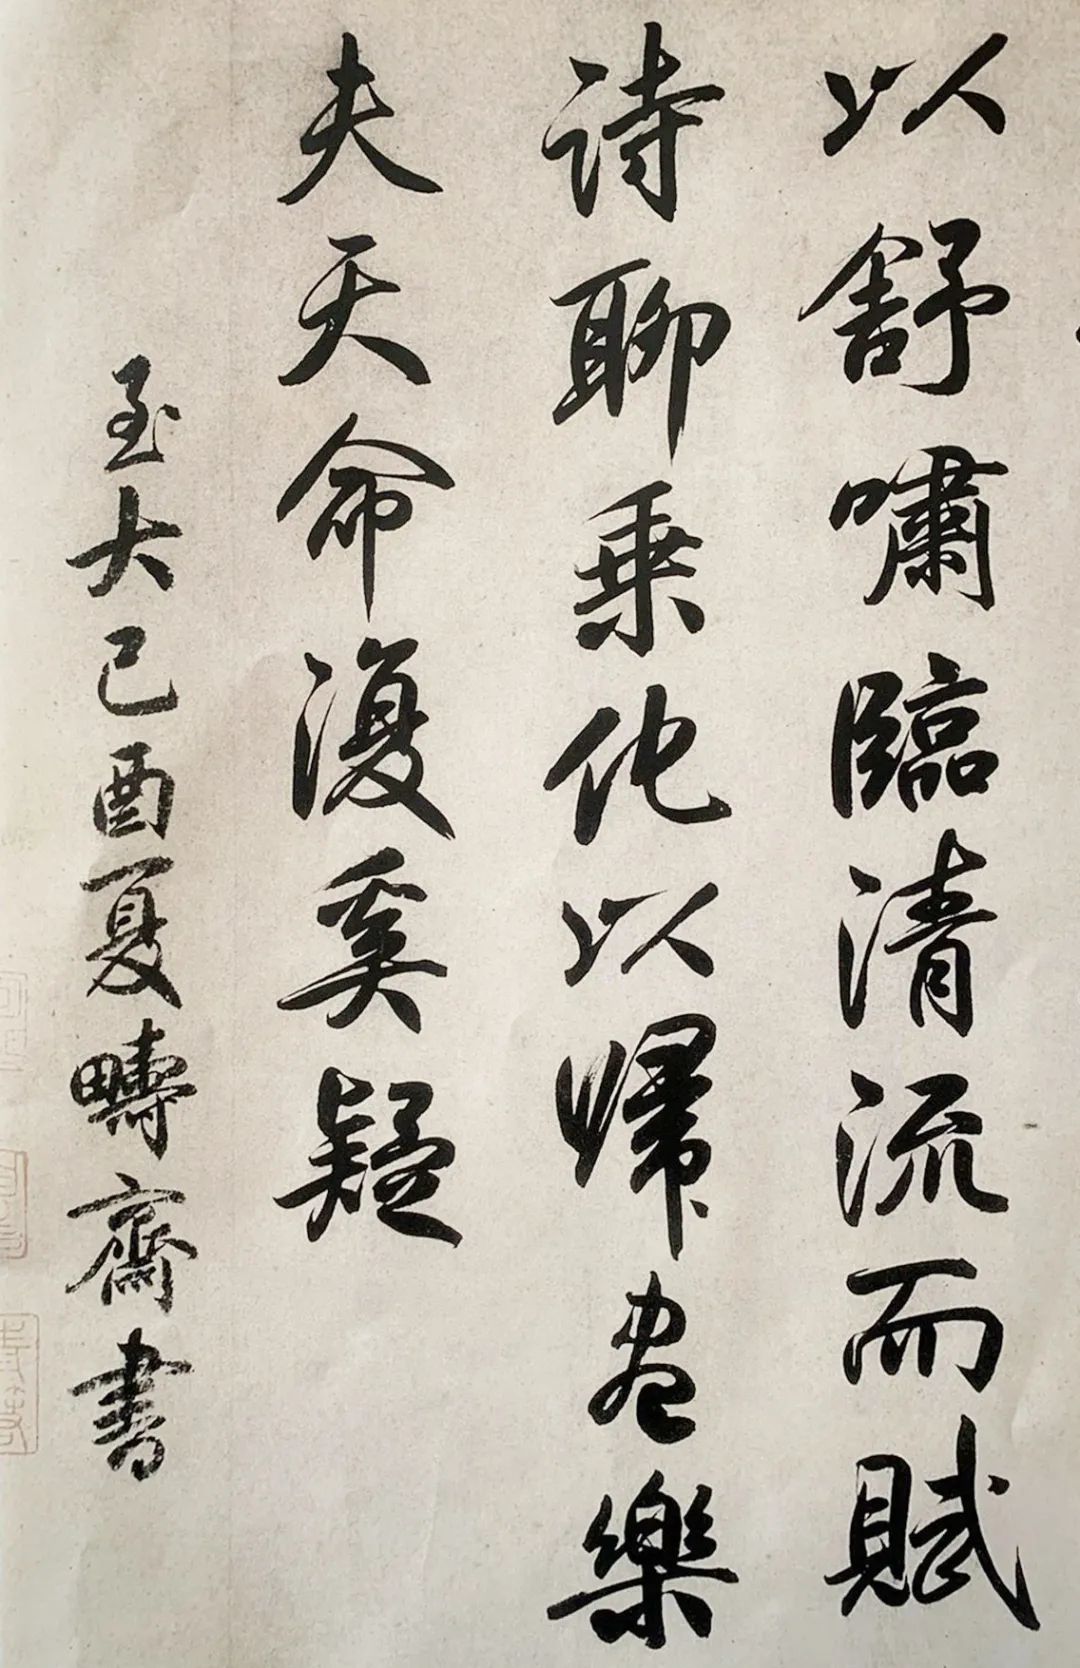 以舒嘯臨清流而賦
诗聊乗化以歸盡樂
夫天命復奚疑
至大己酉夏疇齋書